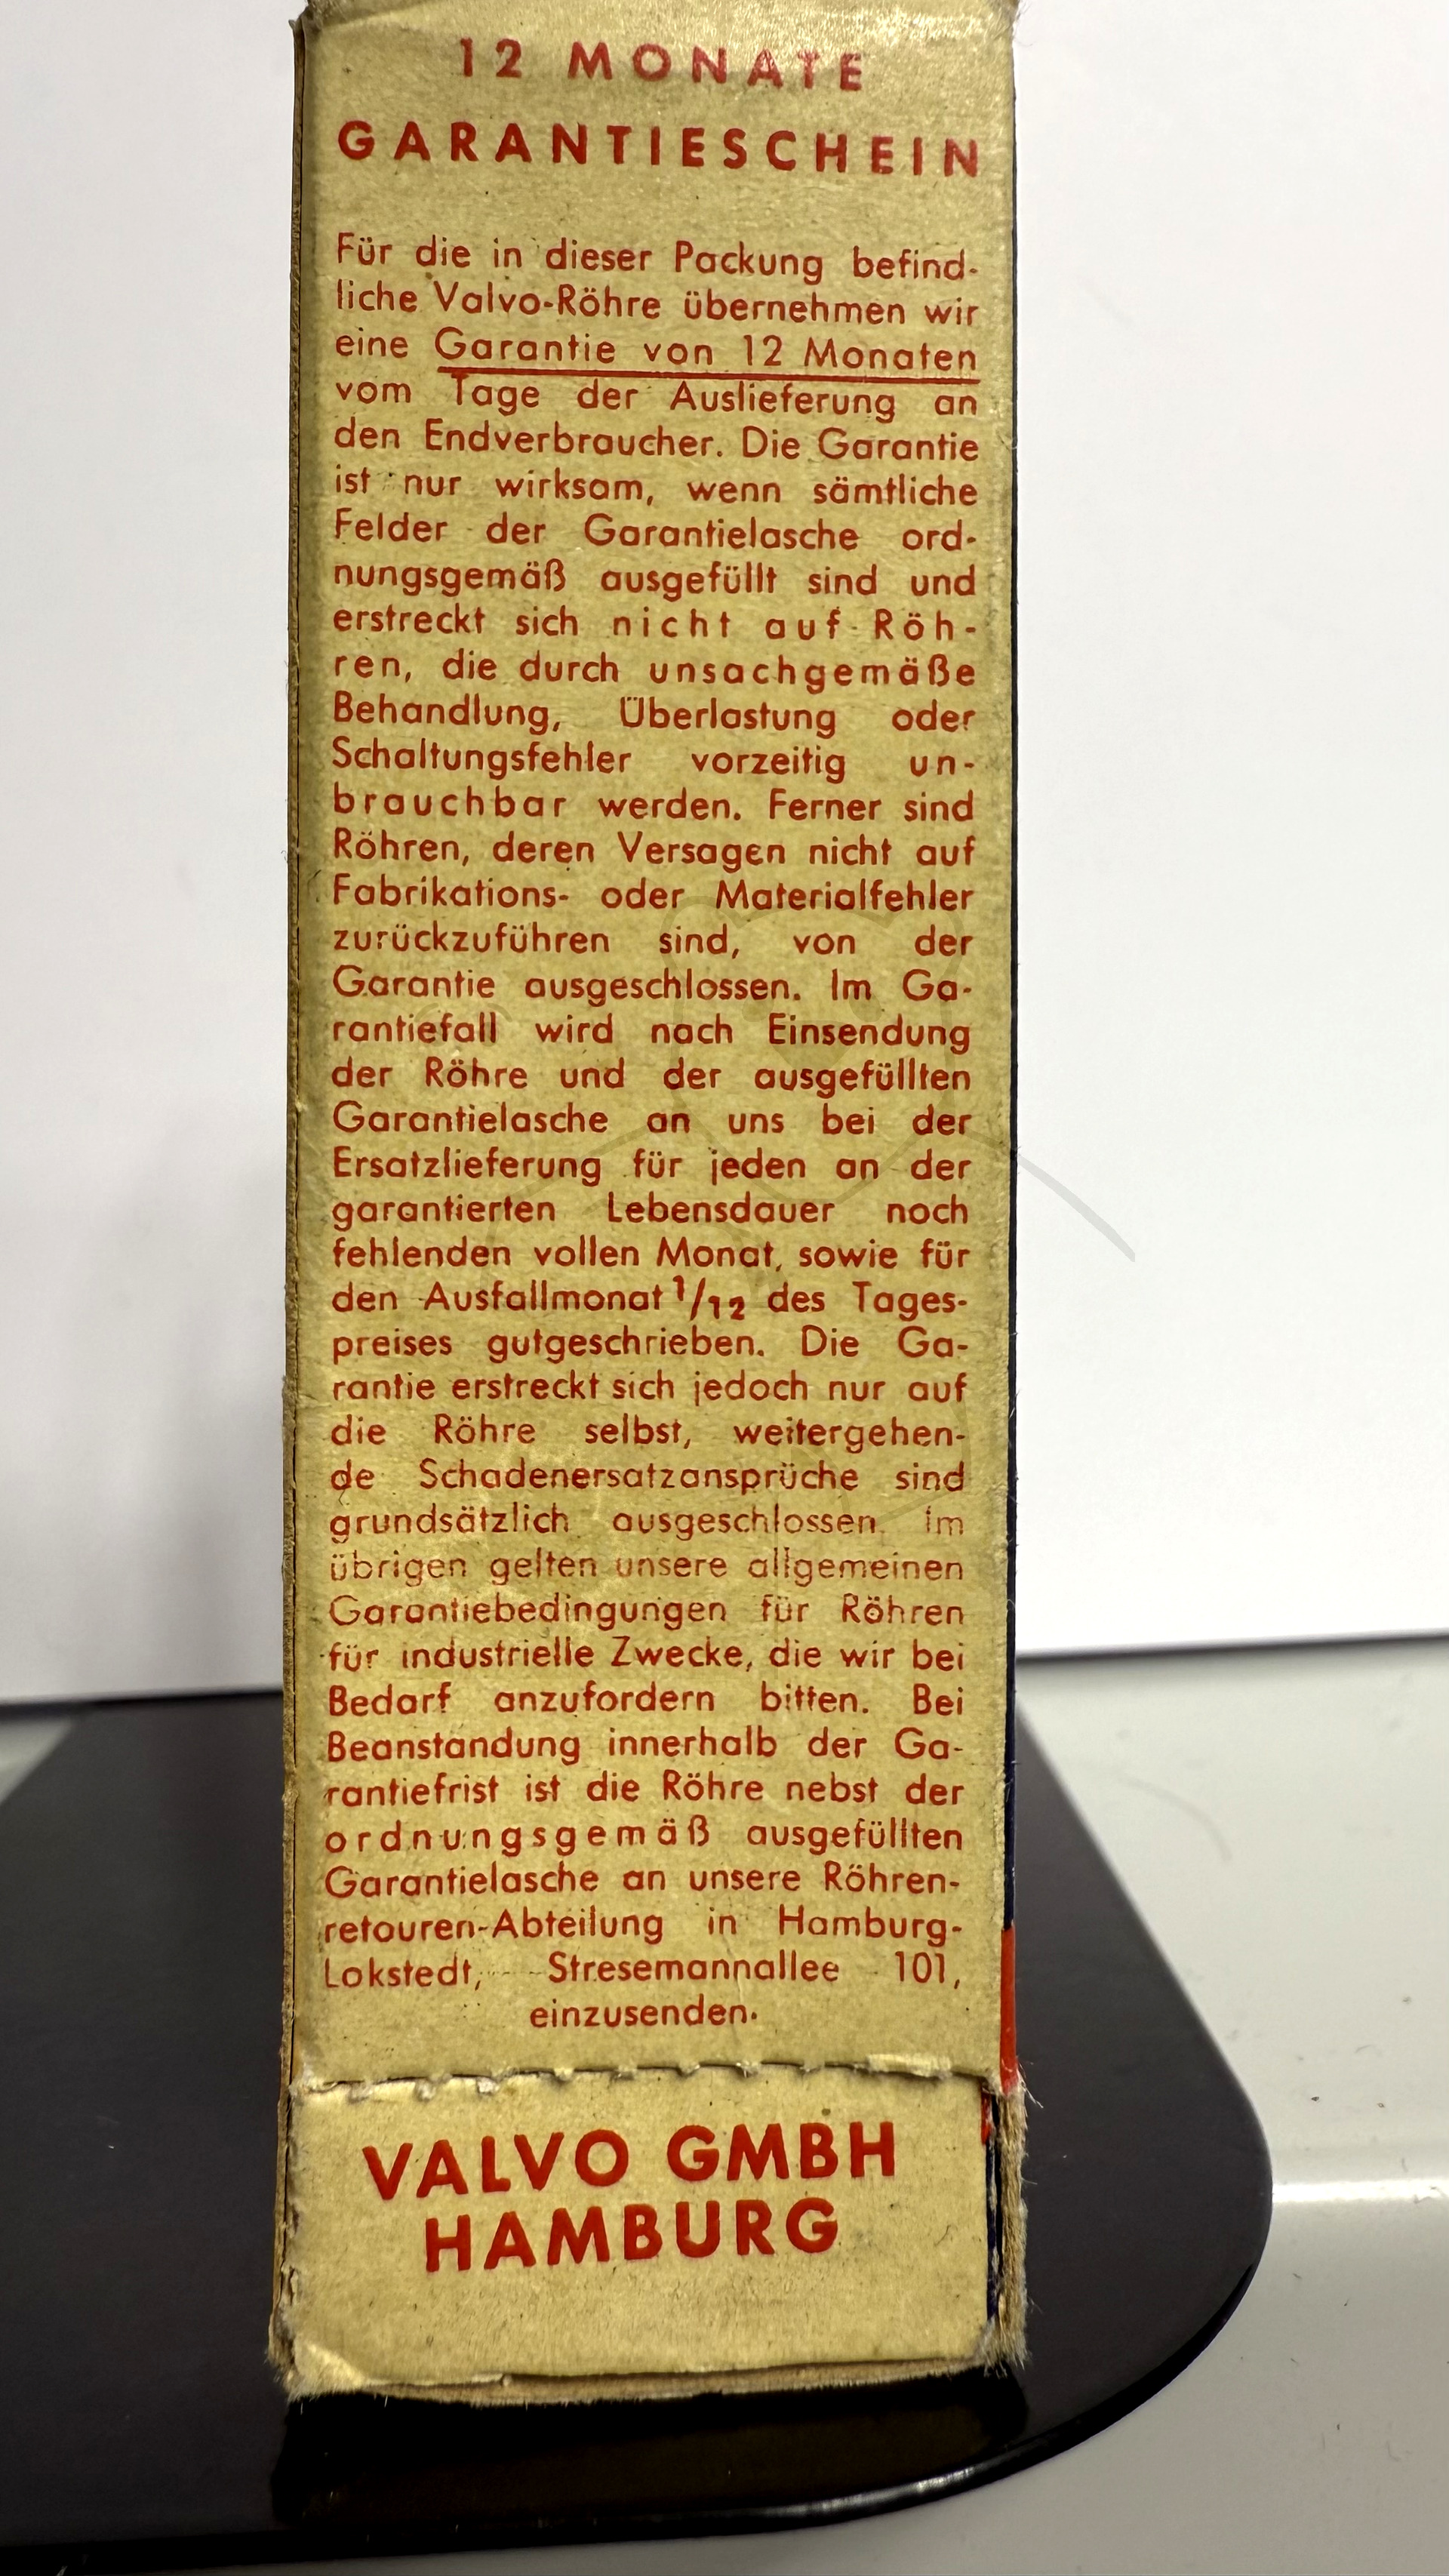 12 MONATE
GARANTIESCHEIN
Für die in dieser Packung befind-
liche Valvo-Röhre übernehmen wir
eine Garantie von 12 Monaten
vom Tage der Auslieferung an
den Endverbraucher. Die Garantie
ist nur wirksam, wenn sämtliche
Felder der Garantielasche ord-
nungsgemäß ausgefüllt sind und
erstreckt sich nicht auf Röh-
ren, die durch unsachgemäße
Behandlung, Überlastung oder
Schaltungsfehler vorzeitig un-
brauchbar werden. Ferner sind
Röhren, deren Versagen nicht auf
Fabrikations- oder Materialfehler
zurückzuführen sind, von der
Garantie ausgeschlossen. Im Ga-
rantiefall wird nach Einsendung
der Röhre und der ausgefüllten
Garantielasche an uns bei der
Ersatzlieferung für jeden an der
garantierten Lebensdauer noch
fehlenden vollen Monat, sowie für
den Ausfallmonat 1/12 des Tages-
preises gutgeschrieben. Die Ga-
rantie erstreckt sich jedoch nur auf
die Röhre selbst, weitergehen-
de Schadenersatzansprüche sind
grundsätzlich ausgeschlossen. Im
übrigen gelten unsere allgemeinen
Garantiebedingungen für Röhren
für industrielle Zwecke, die wir bei
Bedarf anzufordern bitten. Bei
Beanstandung innerhalb der Ga-
rantiefrist ist die Röhre nebst der
ordnungsgemäß ausgefüllten
Garantielasche an unsere Röhren-
retouren-Abteilung in Hamburg-
Lokstedt, Stresemannallee 101,
einzusenden.
VALVO GMBH
HAMBURG